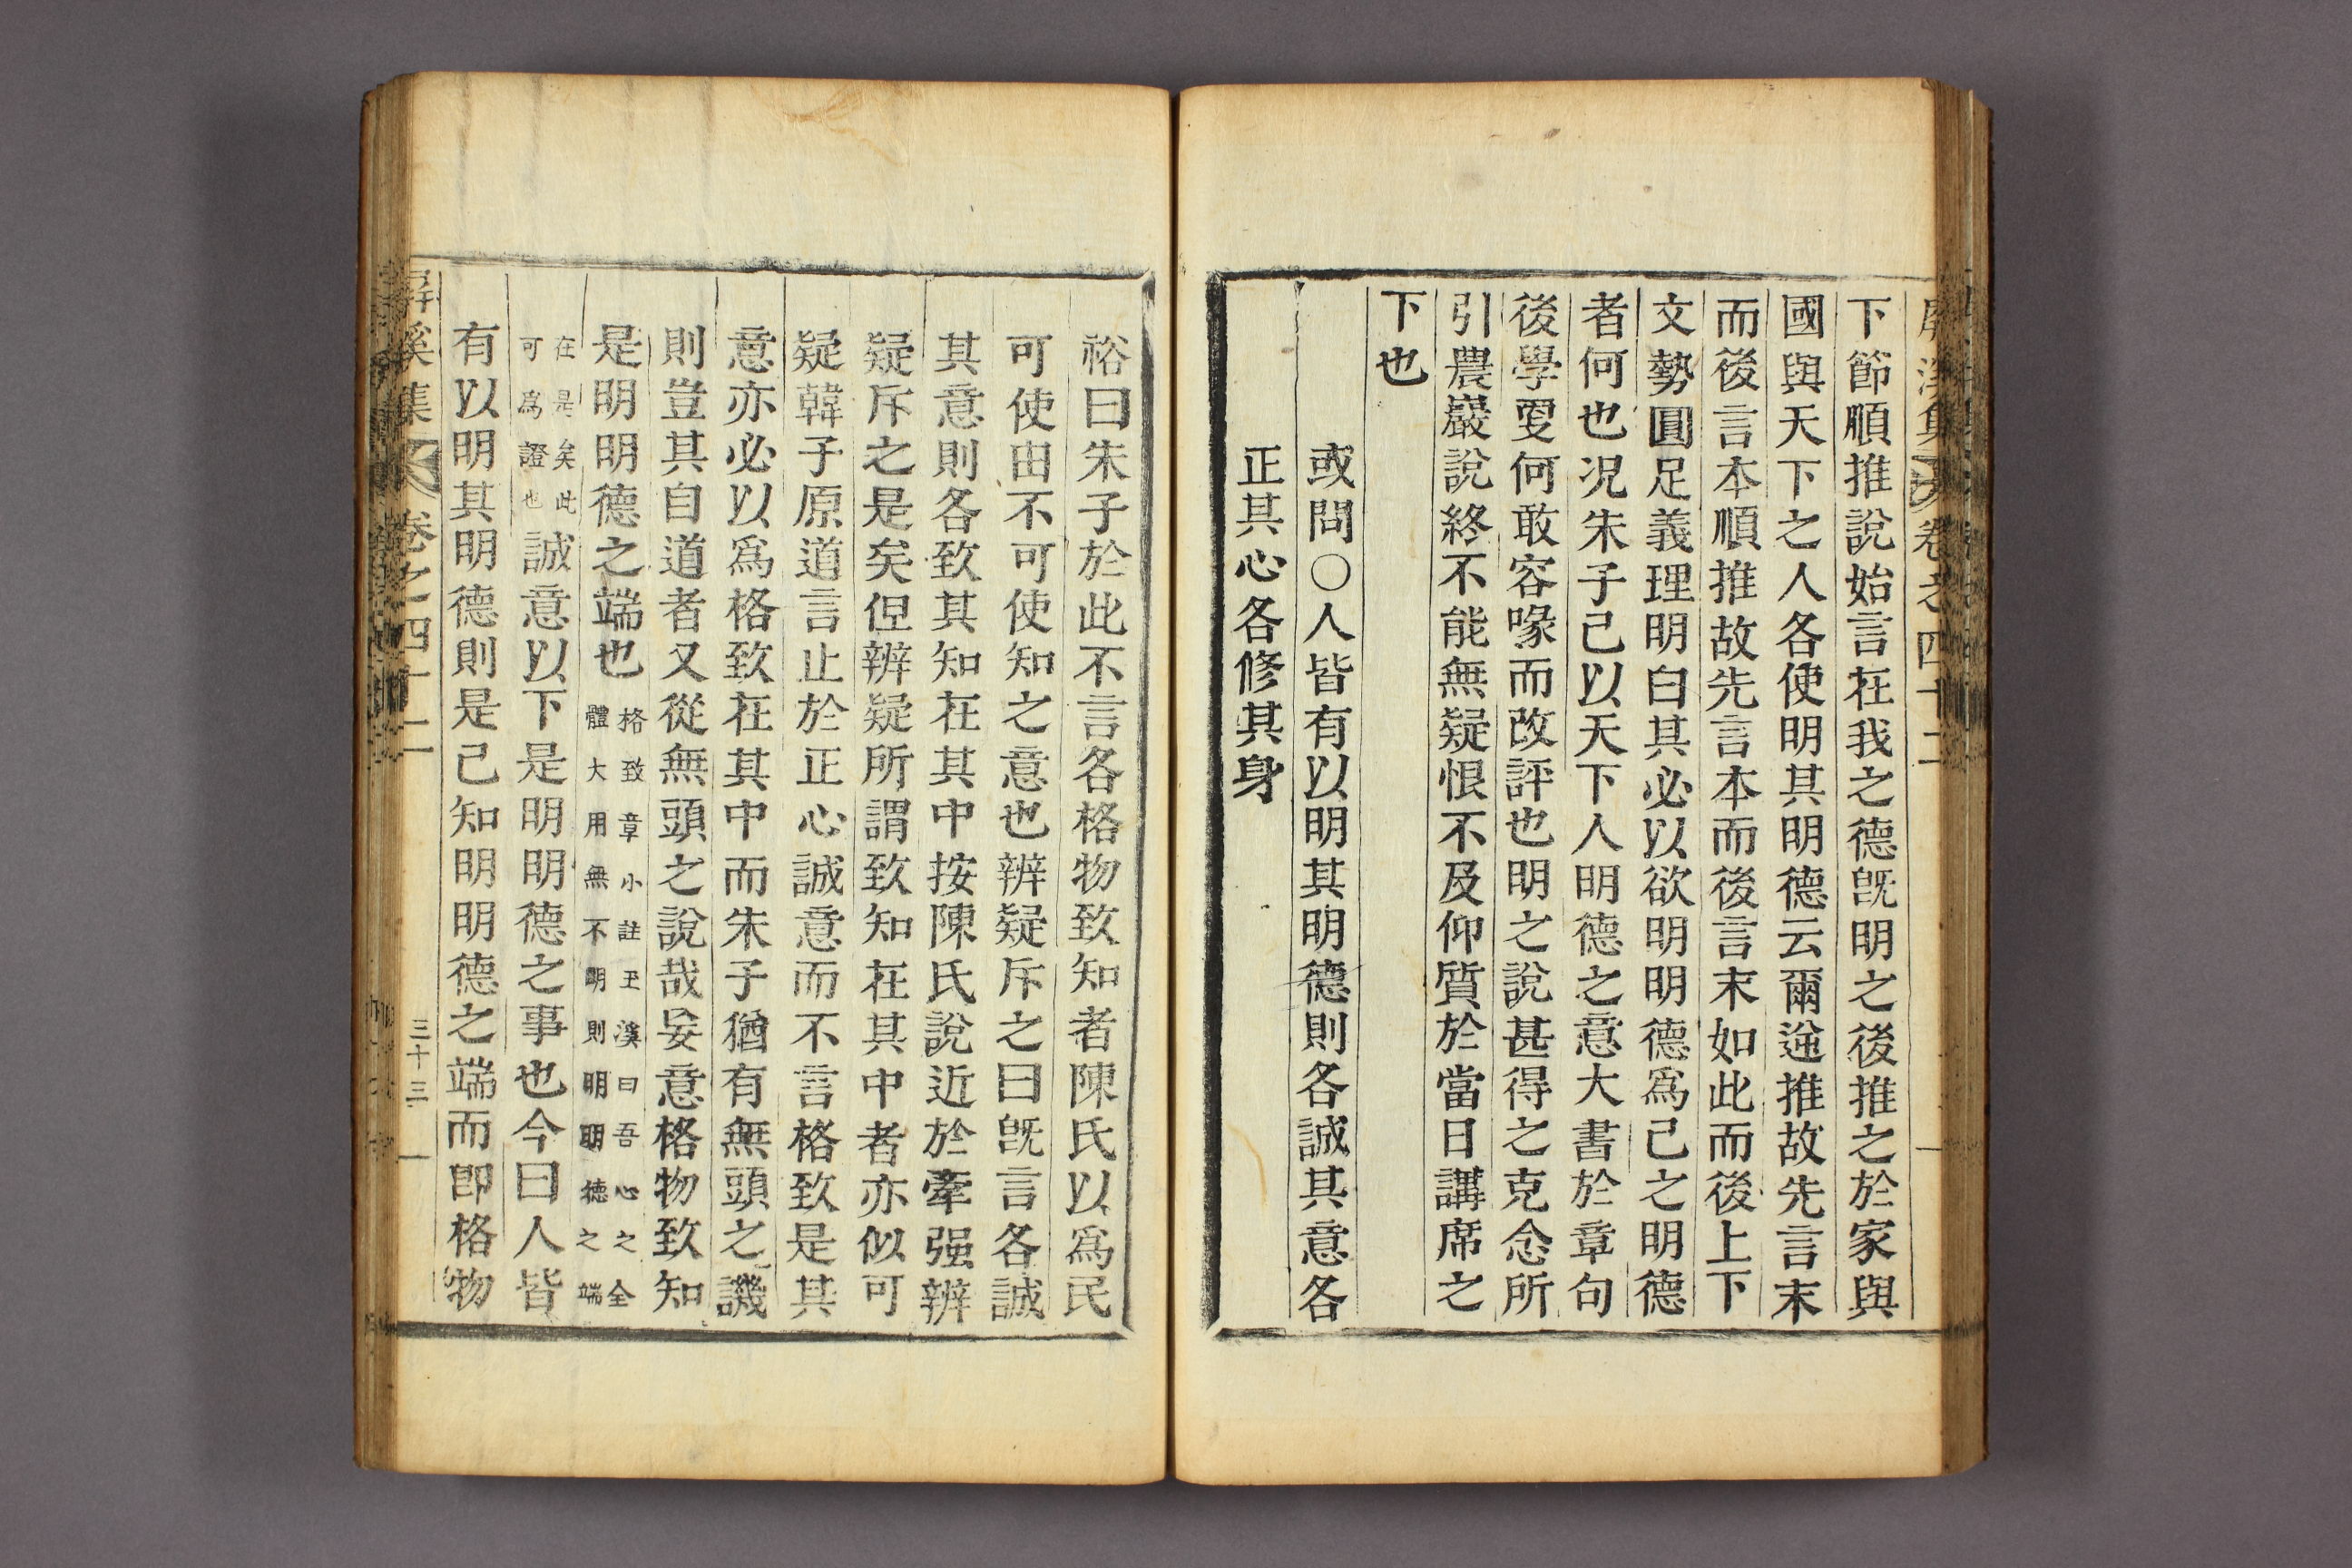 屛溪集 卷之四十二
下節順推說始言在我之德旣明之後推之於家與
國與天下之人各使明其明德云爾逆推故先言末
而後言本順推故先言本而後言末如此而後上下
文勢圓足義理明白其必以欲明明德爲己之明德
者何也况朱子已以天下人明德之意大書於章句
後學更何敢容喙而改評也明之說甚得之克念所
引農巖說終不能無疑恨不及仰質於當日講席之
下也
或問○人皆有以明其明德則各誠其意各
正其心各修其身
裕曰朱子於此不言各格物致知者陳氏以爲民
可使由不可使知之意也辨疑斥之曰旣言各誠
其意則各致其知在其中按陳氏說近於牽强辨
疑斥之是矣但辨疑所謂致知在其中者亦似可
疑韓子原道言止於正心誠意而不言格致是其
意亦必以爲格致在其中而朱子猶有無頭之譏
則豈其自道者又從無頭之說哉妄意格物致知
是明明德之端也格致章小註玉溪曰吾心之全
體大用無不明則明明德之端
在是矣此
可爲證也誠意以下是明明德之事也今曰人皆
有以明其明德則是已知明明德之端而卽格物
屛溪集 卷之四十二 三十三